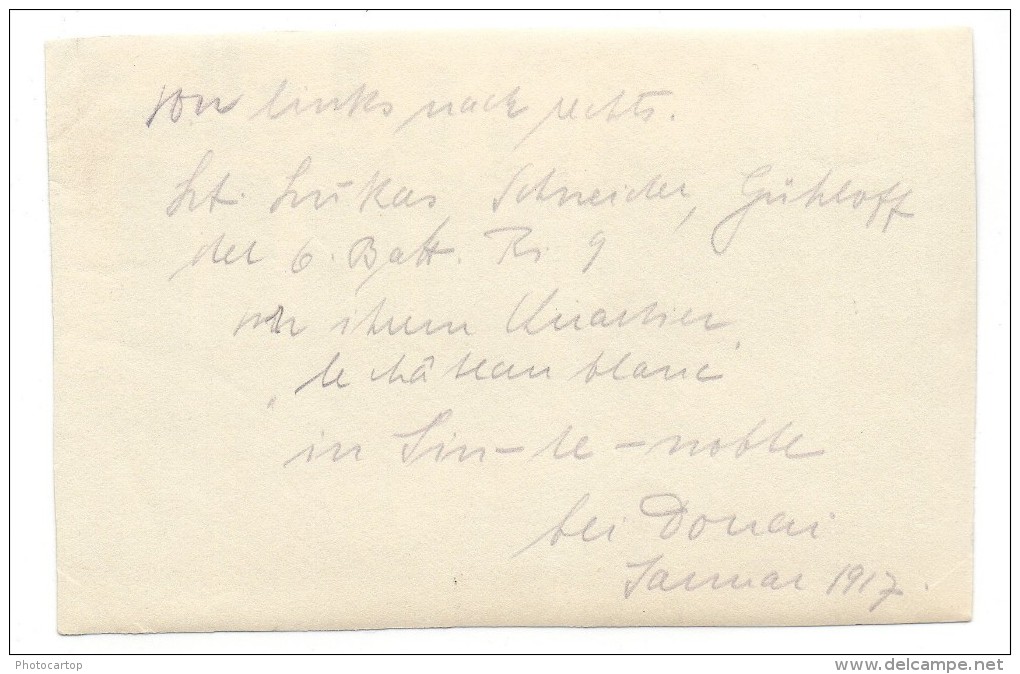 von links nach rechts.
Lt. Lukas, Schneider, Gühloff
der 6. Batt. Rs. 9
vor ihrem Quartier
"le château blanc"
in Sin-le-noble
bei Douai
Januar 1917.
Photocartop
www.delcampe.net